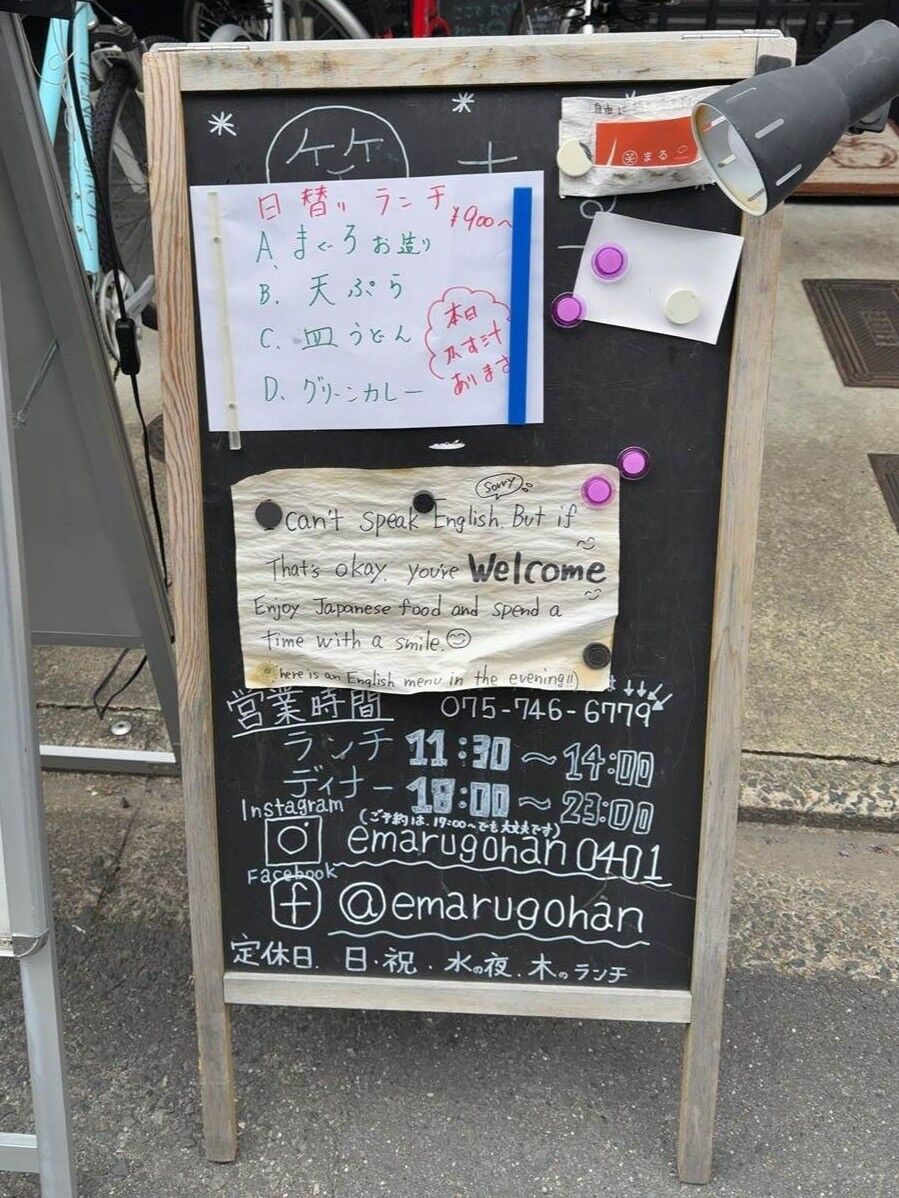 日替り ランチ
¥900〜
A. まぐろお造り
B. 天ぷら
C. 皿うどん
D. グリーンカレー
本日
みす汁
あります
Sorry
can't speak English. But if
That's okay, you're Welcome
Enjoy Japanese food and spend a
time with a smile.
here is an English menu in the evening!!)
営業時間
075-746-6779
ランチ 11:30 〜 14:00
ディナー 18:00 〜 23:00
(ご予約は、17:00〜でも大丈夫です)
Instagram
emarugohan0401
Facebook
f @emarugohan
定休日. 日・祝. 水の夜. 木のランチ